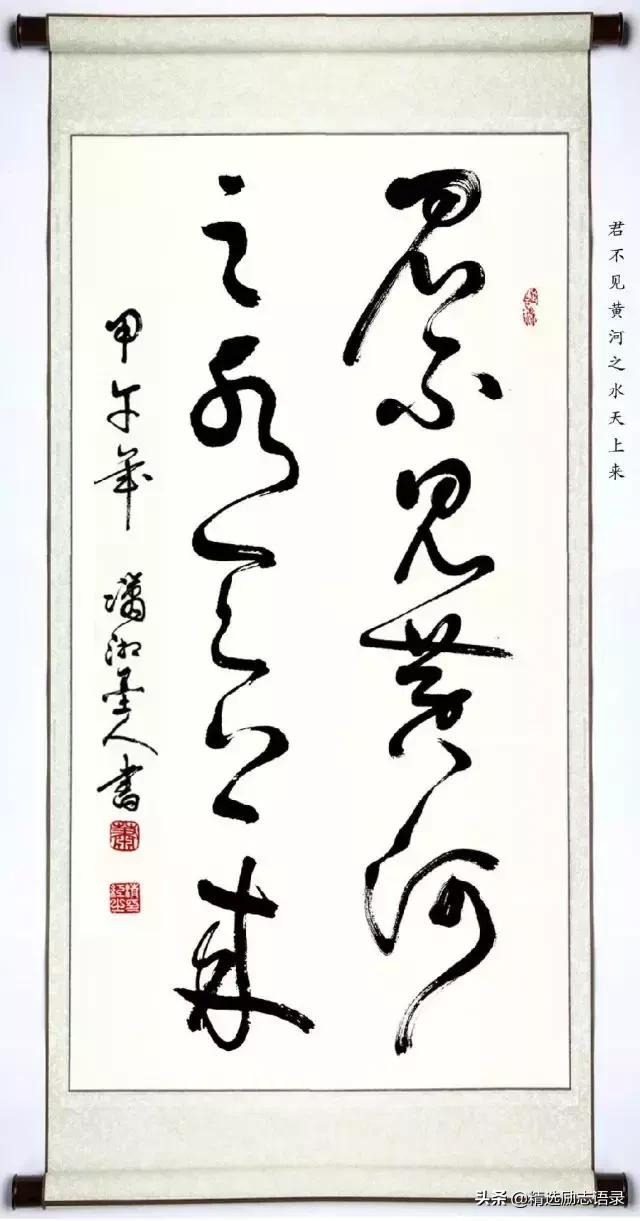 君不见黄河
之水天上来
甲午年 潇湘墨人书
君不见黄河之水天上来
头条 @精选励志语录